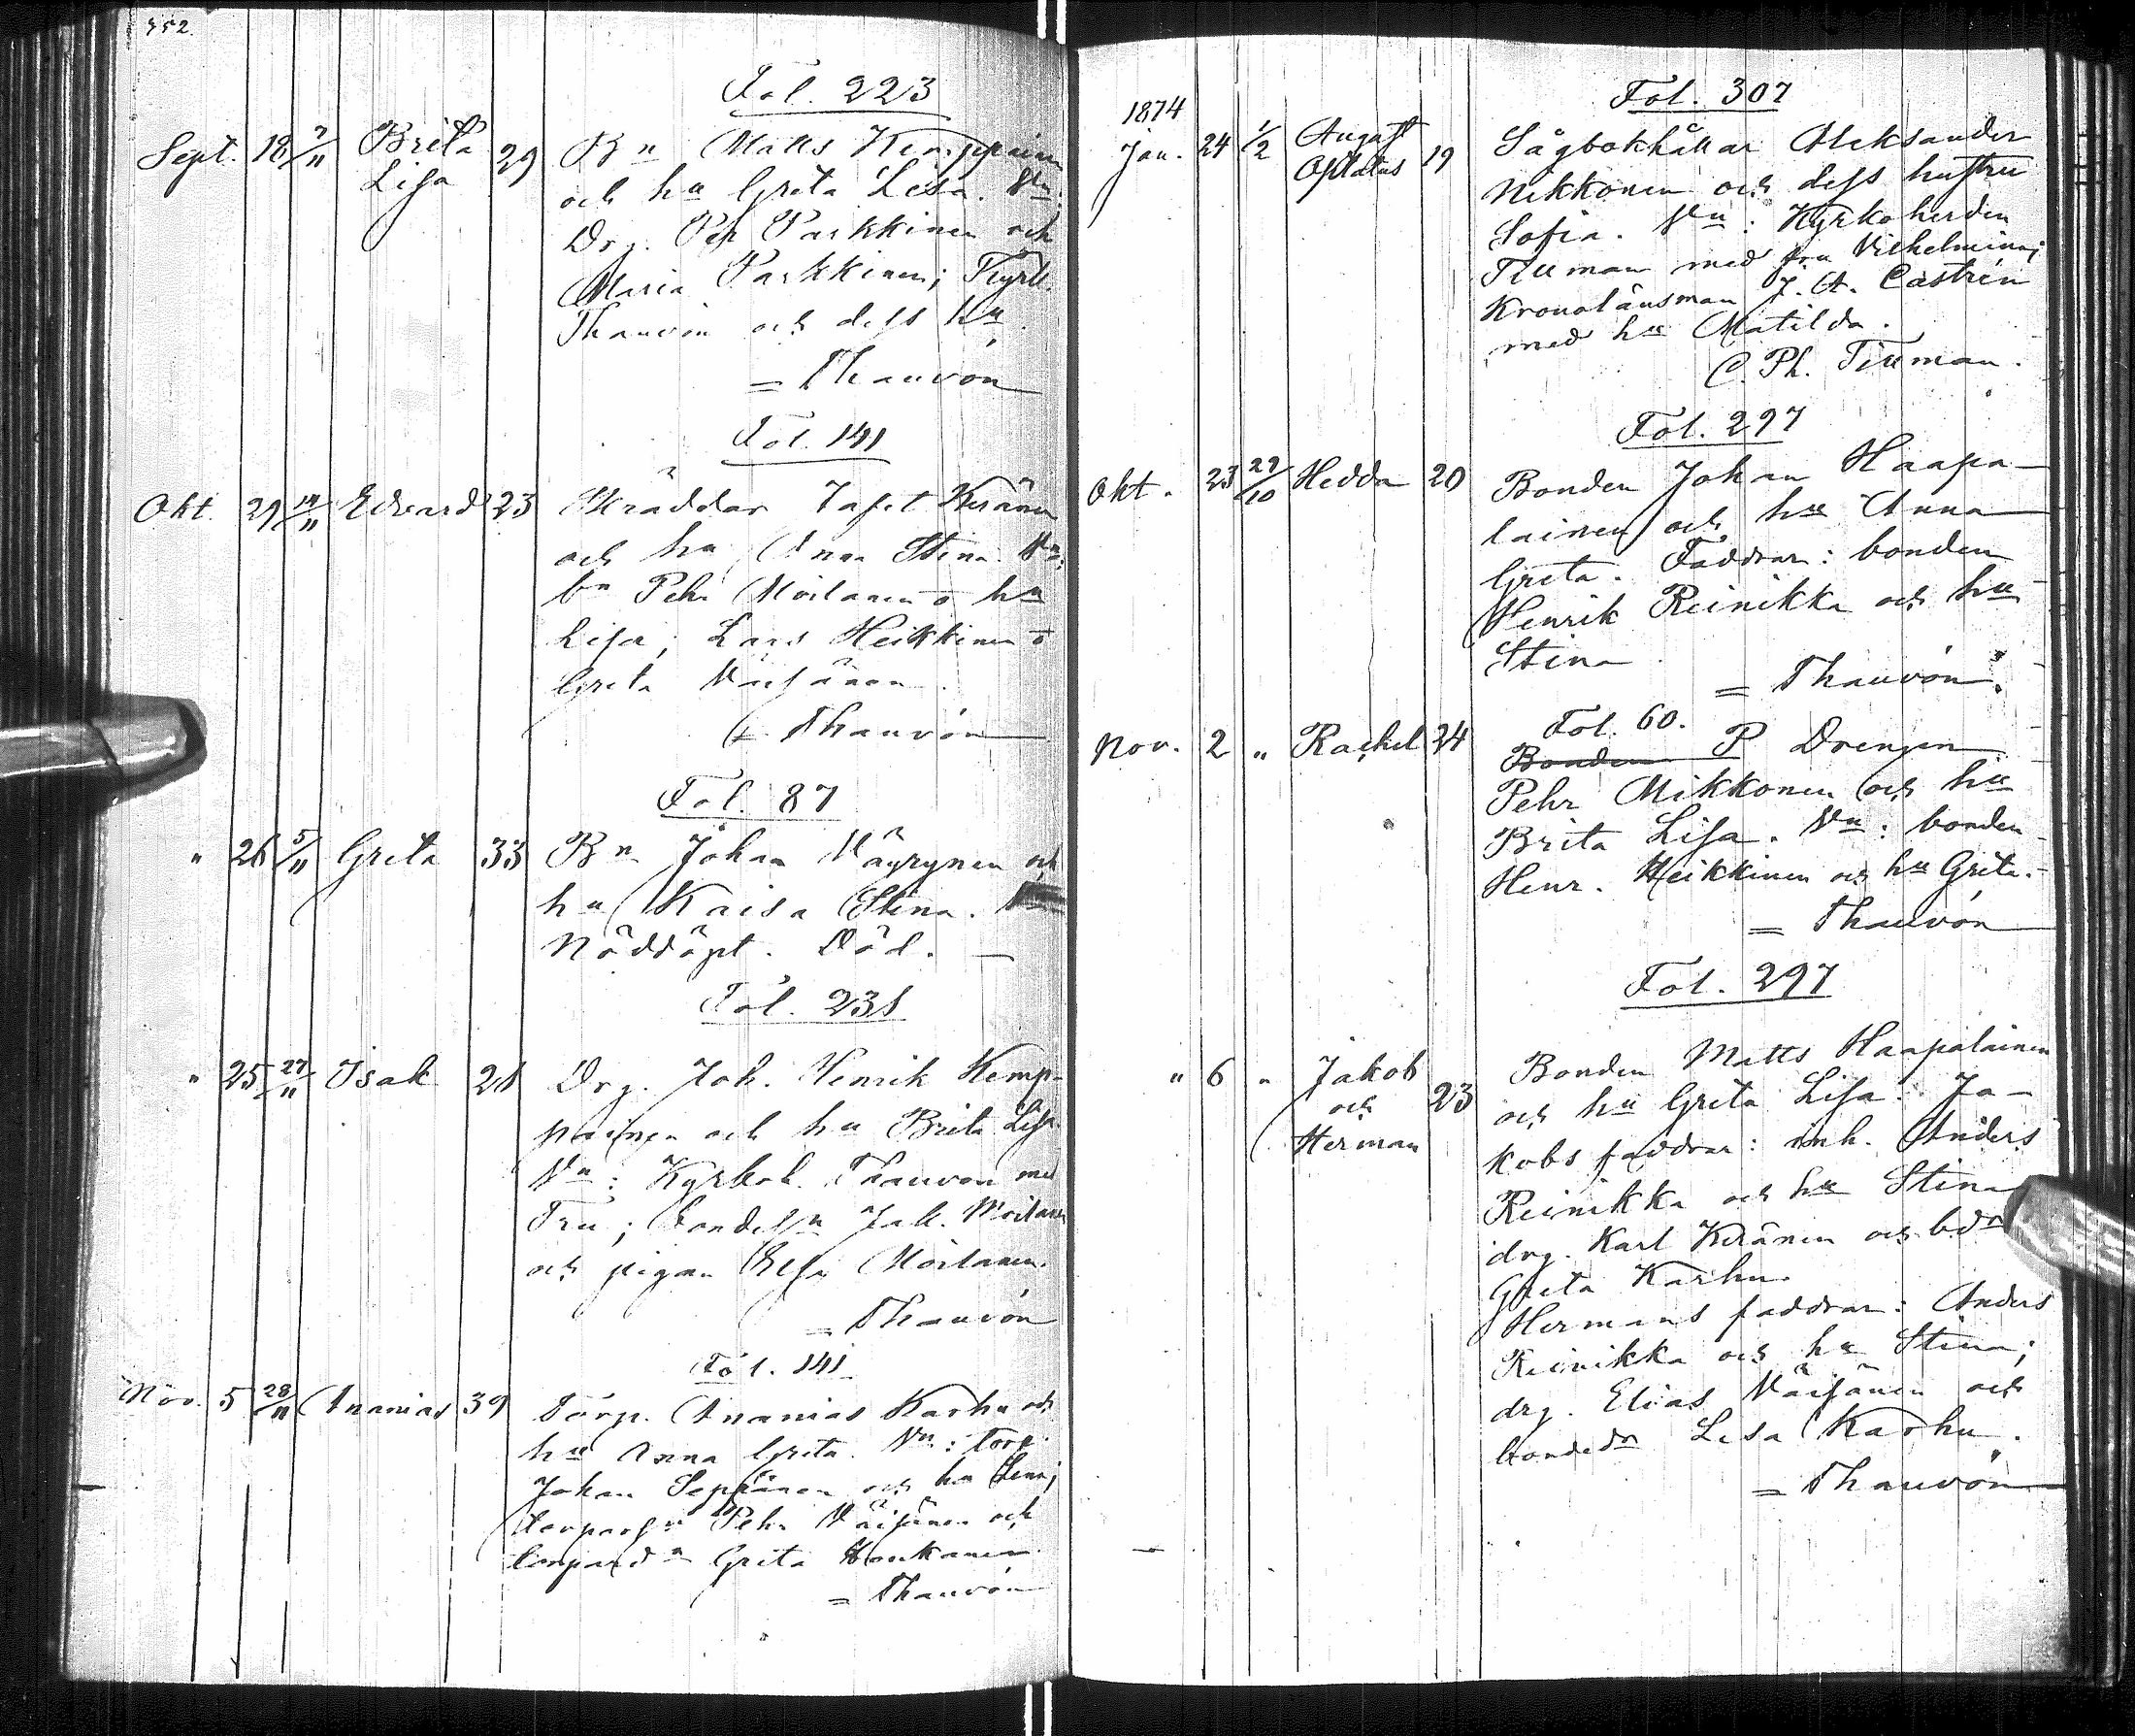 352.
Fol. 223
Sept. 18 7/11 Brita Lisa 29 Bn Matts Kemppainen
och hu Greta Lisa. Vn:
Drg. Pehr Parkkinen och
Maria Parkkinen; Kyrk.
Thauvón och dess hu.
= Thauvón
Fol. 141
Okt. 29 14/11 Edvard 23 Skräddar Tafet Keränen
och hu Anna Stina. Vn:
bn Pehr Moilanen o hu
Lisa; Lars Heikkinen o
Greta Väisänen.
= Thauvón
Fol. 87
" 26 5/11 Greta 33 Bn Johan Väyrynen och
hu Kaisa Stina.
Nöddöpt. Död. —
Fol. 238
" 25 27/11 Isak 28 Drg. Joh. Henrik Kemp-
painen och hu Brita Lisa
Vn: Kyrkoh. Thauvón med
Fru; bondesn Jak. Moilanen
och pigan Elsa Moilanen.
= Thauvón
Fol. 141
Nov. 5 28/11 Ananias 39 Torp. Ananias Karhu och
hu Anna Greta. Vn: torp.
Johan Seppänen och hu Lena;
torparsn Pehr Väisänen och
torpared. Greta Honkanen
= Thauvón
Fol. 307
1874
Jan. 24 1/2 August Optatus 19 Sågbokhållar Aleksander
Nikkonen och dess hustru
Sofia. Vn: Kyrkoherden
Tilman med fru Vilhelmina;
Kronolänsman J. A. Castrén
med hu Matilda.
C. Ph. Tilman.
Fol. 297
Okt. 23 29/10 Hedda 20 Bonden Johan Haapa-
lainen och hu Anna
Greta. Faddrar: bonden
Henrik Reinikka och hu
Stina
= Thauvón.
Fol. 60.
Nov. 2 " Rachel 24 Bonden P Drengen
Pehr Mikkonen och hu
Brita Lisa. Vn: bonden
Henr. Heikkinen och hu Greta.
= Thauvón
Fol. 297
" 6 " Jakob och Herman 23 Bonden Matts Haapalainen
och hu Greta Lisa. Ja-
kobs faddrar: inh. Anders
Reinikka och hu Stina
drg. Karl Keränen och bdr
Greta Karhu.
Hermans faddrar: Anders
Reinikka och hu Stina;
drg. Elias Väisänen och
bondedr Lisa Karhu.
= Thauvón